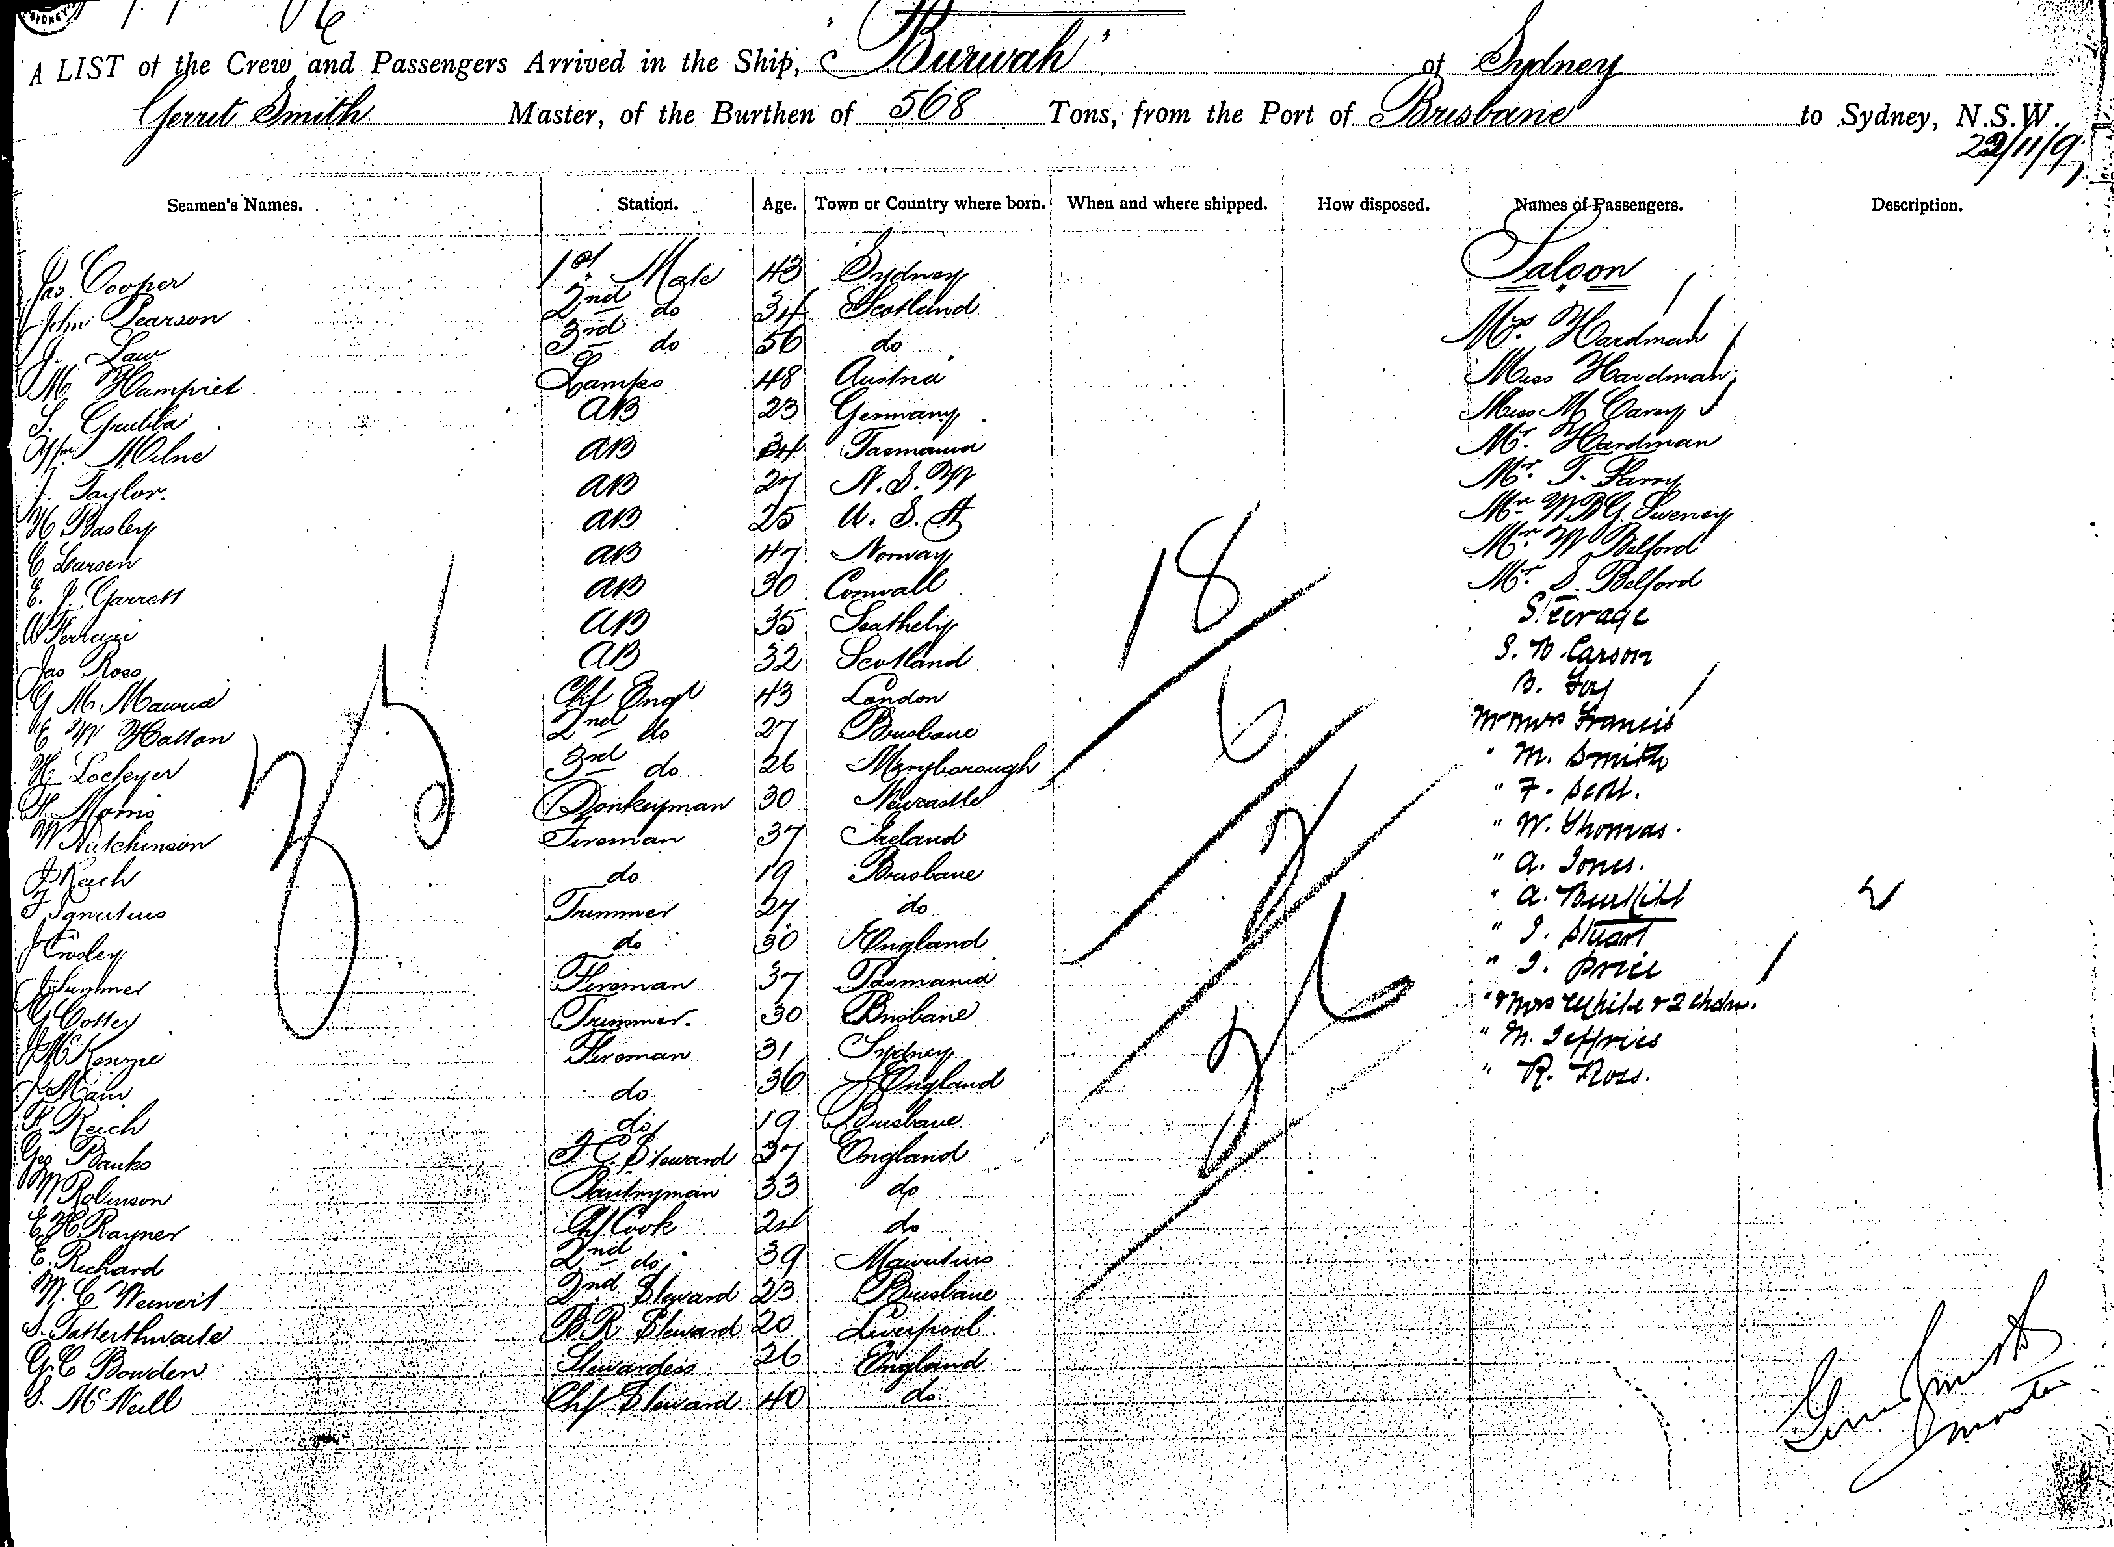 SYDNEY
A LIST of the Crew and Passengers Arrived in the Ship, "Burwah" of Sydney
Gerrit Smith Master, of the Burthen of 568 Tons, from the Port of Brisbane to Sydney, N.S.W.
22/11/97
Seamen's Names. Station. Age. Town or Country where born. When and where shipped. How disposed. Names of Passengers. Description.
Jas Cooper 1st Mate 43 Sydney
John Pearson 2nd do 34 Scotland
J. Law 3rd do 56 do
M Hampriet Lamps 48 Austria
S. Grubba AB 23 Germany
Wm Milne AB 34 Tasmania
J. Taylor. AB 27 N.S.W
H Basley AB 25 U.S.A
C Larsen AB 47 Norway
E. J. Garrett AB 30 Cornwall
AB 35
Jas Ross AB 32 Scotland
G M. Maurice Chf Engr 43 London
E W Hatton 2nd do 27 Brisbane
H Lockyer 3rd do 26 Maryborough
Morris Donkeyman 30 Newcastle
W Hutchinson Fireman 37 Ireland
J Reich do 19 Brisbane
F Ignatius Trimmer 27 do
J Croley do 30 England
J Sumner Fireman 37 Tasmania
G Cottey Trimmer. 30 Brisbane
J McKenzie Fireman 31 Sydney
J Main do 36 England
F Reich do 19 Brisbane
Geo Banks F.C. Steward 37 England
W Robinson Pantryman 33 do
E. H. Rayner Chf Cook 24 do
E. Richard 2nd do 39 Mauritius
W. C Weivert 2nd Steward 23 Brisbane
S. Satterthwaite B.R Steward 20 Liverpool
G. C Bowden Stewardess 26 England
S. McNeill Chf Steward 40 do
Saloon
Mrs Hardman
Miss Hardman
Miss M Carey
Mr. Hardman
Mr. T. Parry
Mr W.B.G. Sweney
Mr. W Belford
Mr. S. Belford
Steerage
S. W. Carson
B. Foy
Mr Mrs Francis
" M. Smith
" F. Scott.
" W. Thomas.
" A. Jones.
" A. Burkitt
" J. Stuart
" J. Price
" & Mrs White & 2 chdn.
" M. Jeffries
" R. Ross.
35
18
6
2
26
2
Gerrit Smith
Master